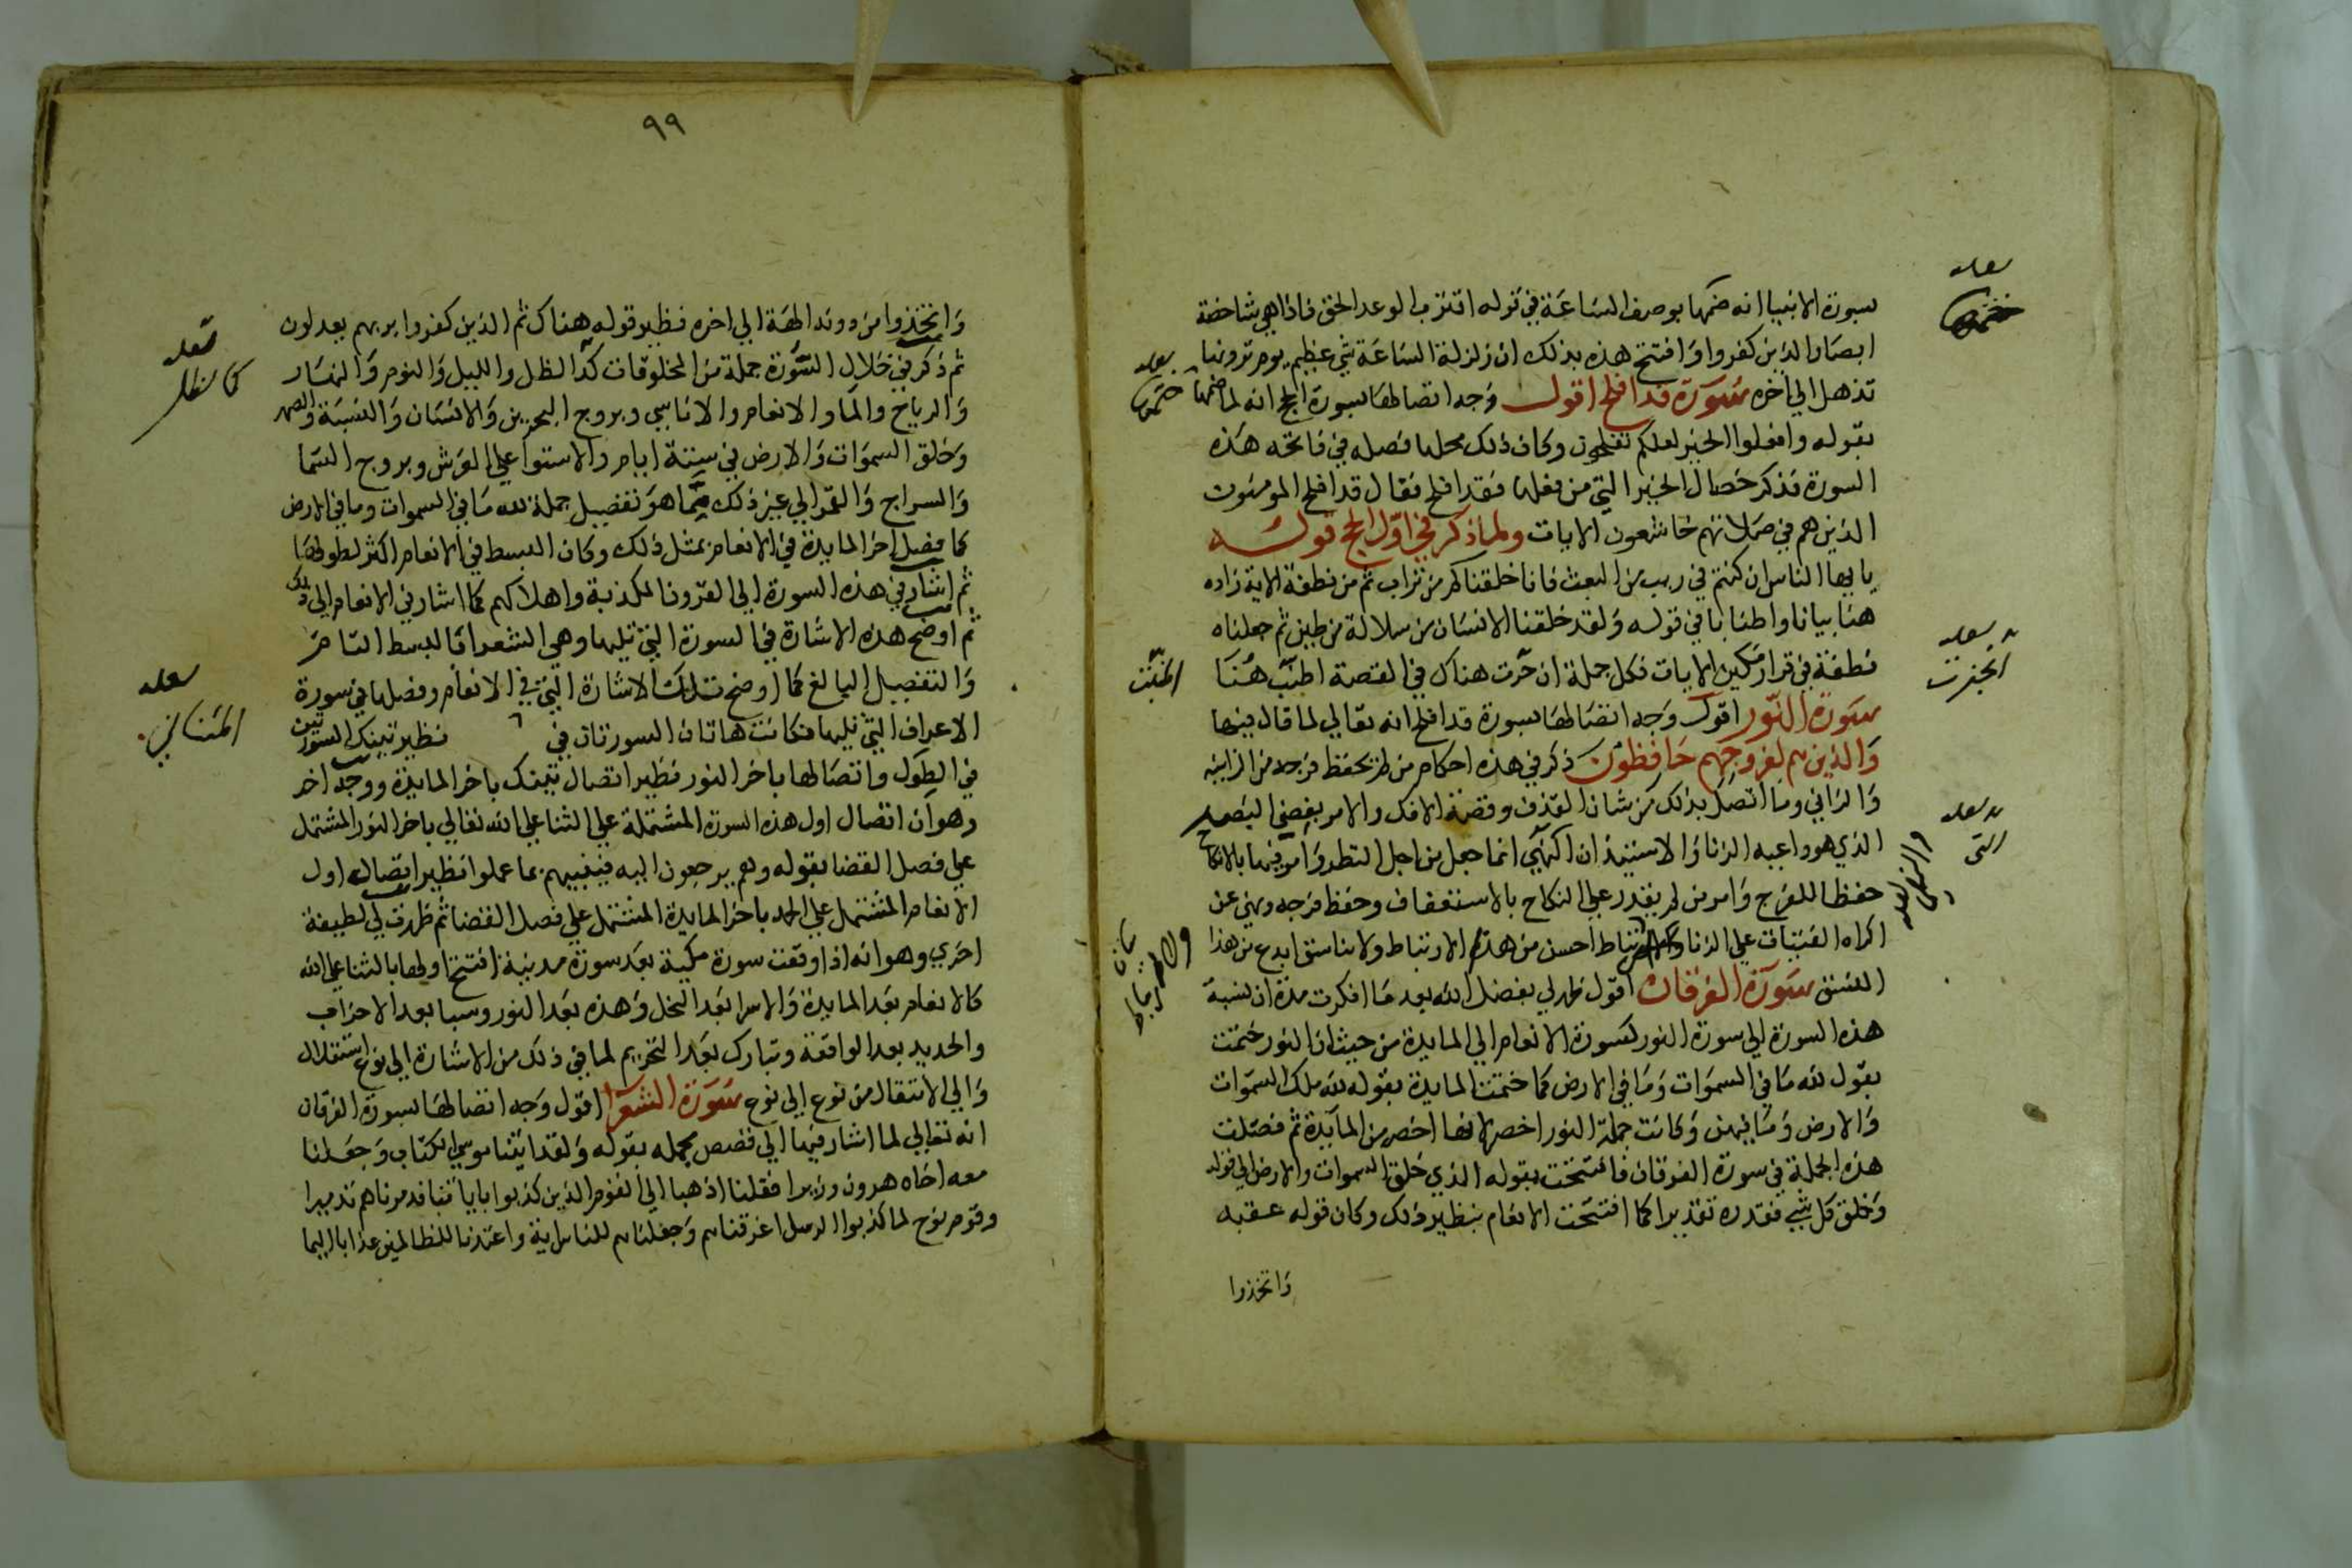 سورة الانبيا انه ختمها بوصف الساعة في قوله اقترب الوعد الحق فاذا هي شاخصة
ابصار الذين كفروا وافتتح هذه بذلك ان زلزلة الساعة شي عظيم يوم ترونها
تذهل الي اخره سورة قد افلح اقول وجه اتصالها بسورة الحج انه لما ختمها
بقوله وافعلوا الخير لعلكم تفلحون وكان ذلك محلا فصله في فاتحه هذه
السورة فذكر خصال الخير التي من فعلها فقد افلح فقال قد افلح المومنون
الذين هم في صلاتهم خاشعون الايات ولما ذكر في اول الحج قوله
يا ايها الناس ان كنتم في ريب من البعث فانا خلقناكم من تراب ثم من نطفة الاية زاده
هنا بيانا واطنابا في قوله ولقد خلقنا الانسان من سلالة من طين ثم جعلناه
نطفة في قرار مكين الايات فكل جملة ان حرت هناك في القصة اطنب هنا
سورة النور اقول وجه اتصالها بسورة قد افلح انه تعالي لما قال فيها
والذين هم لفروجهم حافظون ذكر في هذه احكام من لم يحفظ فرجه من الزانيه
والزاني وما اتصل بذلك من شان القذف وقصة الافك والامر بغض البصر
الذي هو داعيه الزنا والاستيذان الذي انما جعل من اجل النظر وامر فيها بالانكاح
حفظا للفرج وامر من لم يقدر علي النكاح بالاستعفاف وحفظ فرجه ونهي عن
اكراه الفتيات علي الزنا ولا ارتباط احسن من هذا الارتباط ولا تناسق ابدع من هذا
النسق سورة الفرقان اقول ظهر لي بفضل الله بعد ما افكرت مدة ان نسبة
هذه السورة الي سورة النور كسورة الانعام الي المايدة من حيث ان النور ختمت
بقول لله ما في السموات وما في الارض كما ختمت المايدة بقوله لله ملك السموات
والارض وما فيهن وكانت جملة النور اخصر لانها اخصر من المايدة ثم فصلت
هذه الجملة في سورة الفرقان فافتتحت بقوله الذي خلق السموات والارض الي قوله
وخلق كل شي فقدره تقديرا كما افتتحت الانعام بنظير ذلك وكان قوله عقبه
واتخذوا
٩٩
واتخذوا من دونه الهة الي اخره نظير قوله هناك ثم الذين كفروا بربهم يعدلون
ثم ذكر في خلال السورة جملة من المخلوقات كمد الظل والليل والنوم والنهار
والرياح والما والانعام والاناسي ومروج البحرين والانسان والنسبة والصهر
وخلق السموات والارض في ستة ايام والاستوا علي العرش وبروج السما
والسراج والقمر الي غير ذلك مما هو تفصيل جملة لله ما في السموات وما في الارض
كما فصل اخر المايدة في الانعام بمثل ذلك وكان البسط في الانعام اكثر لطولها
ثم اشار في هذه السورة الي القرون المكذبة واهلاكهم كما اشار في الانعام الي ذلك
ثم اوضح هذه الاشارة في السورة التي تليها وهي الشعرا بالبسط التام
والتفصيل البالغ كما اوضح تلك الاشارة التي في الانعام وفصلها في سورة
الاعراف التي تليها فكانت هاتان السورتان في نظير تينك السورتين
في الطول واتصالها باخر النور نظير اتصال تينك باخر المايدة ووجه اخر
وهو ان اتصال اول هذه السورة المشتملة علي الثنا علي الله تعالي باخر النور المشتمل
علي فصل القضا بقوله ويوم يرجعون اليه فينبيهم بما عملوا نظير اتصال اول
الانعام المشتمل علي الحمد باخر المايدة المشتمل علي فصل القضا ثم ظهرت لي لطيفة
اخري وهو انه اذا وقعت سورة مكية بعد سورة مدنية افتتح اولها بالثنا علي الله
كالانعام بعد المايدة والاسرا بعد النحل وهذه بعد النور وسبا بعد الاحزاب
والحديد بعد الواقعة وتبارك بعد التحريم لما في ذلك من الاشارة الي نوع استقلال
والي الانتقال من نوع الي نوع سورة الشعرا اقول وجه اتصالها بسورة الفرقان
انه تعالي لما اشار فيها الي قصص مجمله بقوله ولقد اتينا موسي الكتاب وجعلنا
معه اخاه هرون وزيرا فقلنا اذهبا الي القوم الذين كذبوا باياتنا فدمرناهم تدميرا
وقوم نوح لما كذبوا الرسل اغرقناهم وجعلناهم للناس اية واعتدنا للظالمين عذابا اليما
كالظل
المثاني